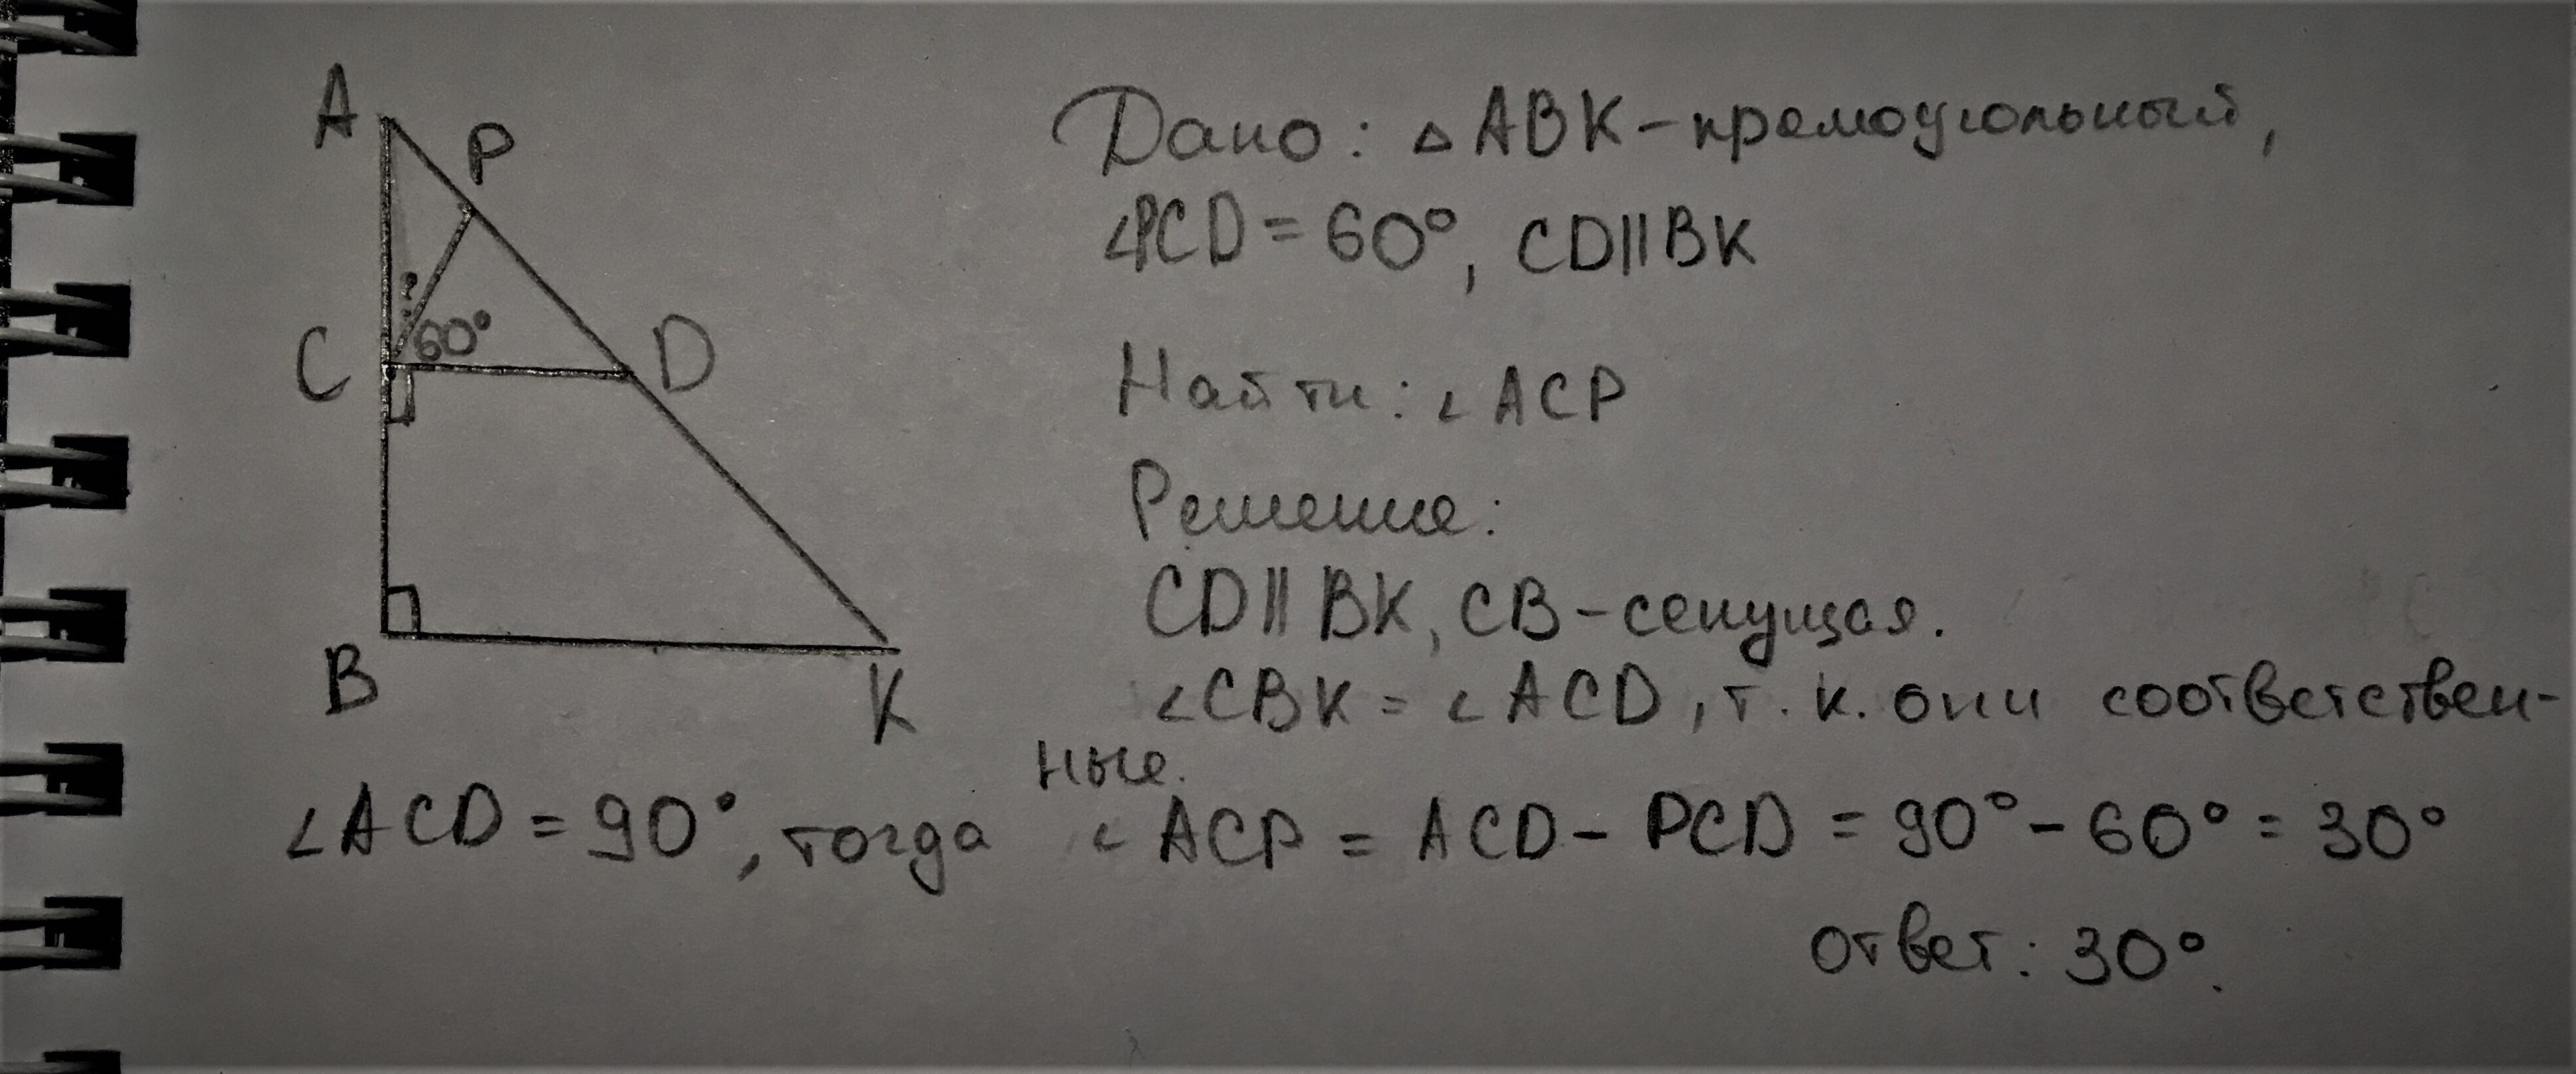 A
P
?
60°
C
D
B
K
Дано: △ABK-прямоугольный,
∠PCD = 60°, CD||BK
Найти: ∠ACP
Решение:
CD||BK, CB-секущая.
∠CBK = ∠ACD, т. к. они соответствен-
ные.
∠ACD = 90°, тогда ∠ACP = ACD - PCD = 90° - 60° = 30°
ответ: 30°.